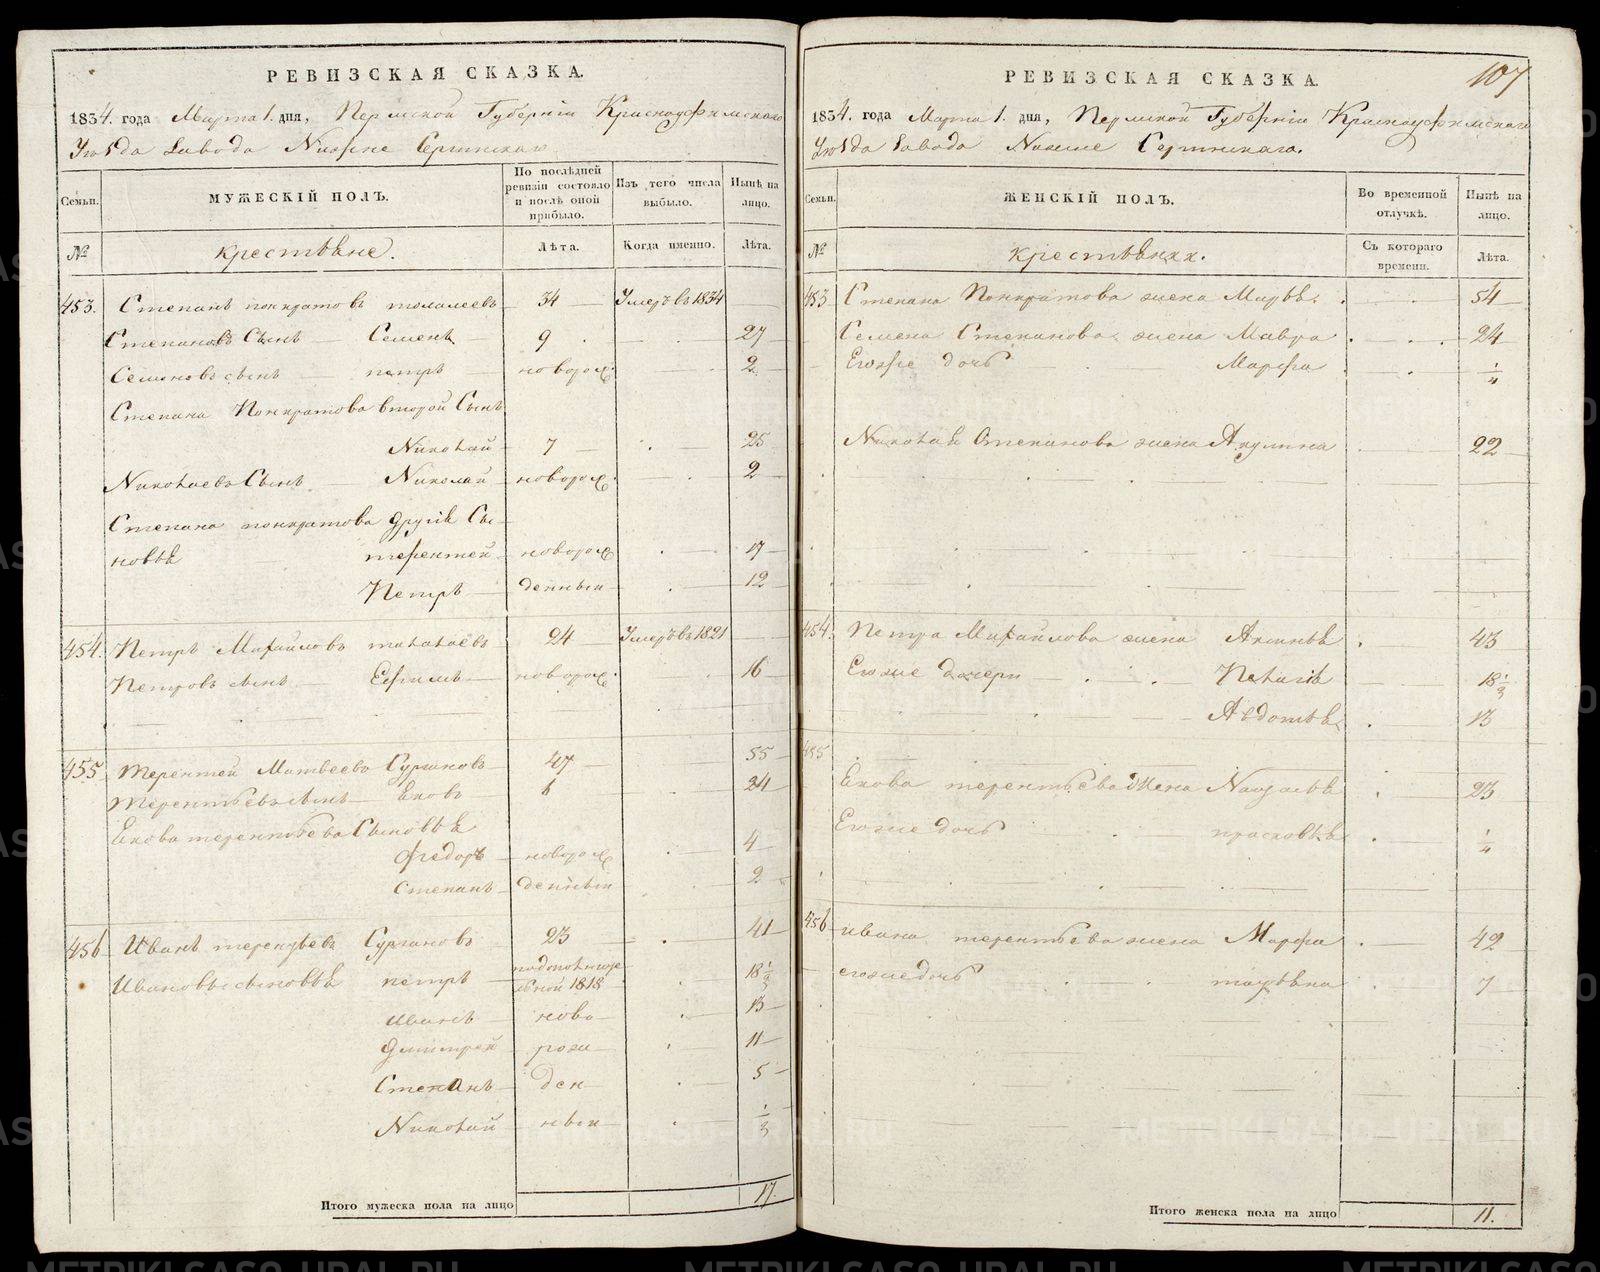 РЕВИЗСКАЯ СКАЗКА.
1834. года Марта 1. дня, Пермской Губерніи Красноуфимскаго
Уѣзда Завода Нижне Сергинскаго
Семьи.
МУЖЕСКІЙ ПОЛЪ.
По послѣдней ревизіи состояло и послѣ оной прибыло.
Изъ того числа выбыло.
Нынѣ на лицо.
№
крестьѣне.
Лѣта.
Когда именно.
Лѣта.
453. Степанъ понкратовъ 34 Умеръ въ 1834
Степановъ Сынъ Семенъ 9 27
Семеновъ сынъ петръ новорож 2
Степана Понкратова второй Сынъ
Николай 7 25
Николаевъ Сынъ Николай новорож 2
Степана понкратова другіе Сы-
новьѣ терентей новорож 17
Петръ денныи 12
454. Петръ Михайловъ 24 Умеръ въ 1821
Петровъ сынъ Ефимъ новорож 16
455 Терентей Матвеевъ Сургановъ 47 55
Терентьевъ сынъ Яковъ 6 24
Якова терентьева Сыновьѣ
федоръ новорож 4
Степанъ денныи 2
456 Иванъ терентьевъ Сургановъ 23 41
Ивановы сыновьѣ петръ 1818 18 1/2
Иванъ ново 13
Дмитрей рож 11
Степанъ ден 5
Николай ныи 1/2
Итого мужеска пола на лицо 17.
107
РЕВИЗСКАЯ СКАЗКА.
1834. года Марта 1. дня, Пермской Губерніи Красноуфимскаго
Уѣзда Завода Нижне Сергинскаго.
Семьи.
ЖЕНСКІЙ ПОЛЪ.
Во временной отлучкѣ.
Нынѣ на лицо.
№
крестьѣнки.
Съ котораго времени.
Лѣта.
453 Степана Понкратова жена Марьѣ 54
Семена Степанова жена Мавра 24
Егоже дочь Марфа 1/4
Николаѣ Степанова жена Акулина 22
454. Петра Михайлова жена Аксиньѣ 43
Егоже дочери Пелагіѣ 18 1/2
Авдотьѣ 13
455
Якова терентьева жена 23
Егоже дочь прасковьѣ 1/4
456 ивана терентьева жена Марфа 42
егоже дочь татьѣна 7
Итого женска пола на лицо 11.
METRIKI.GASO-URAL.RU